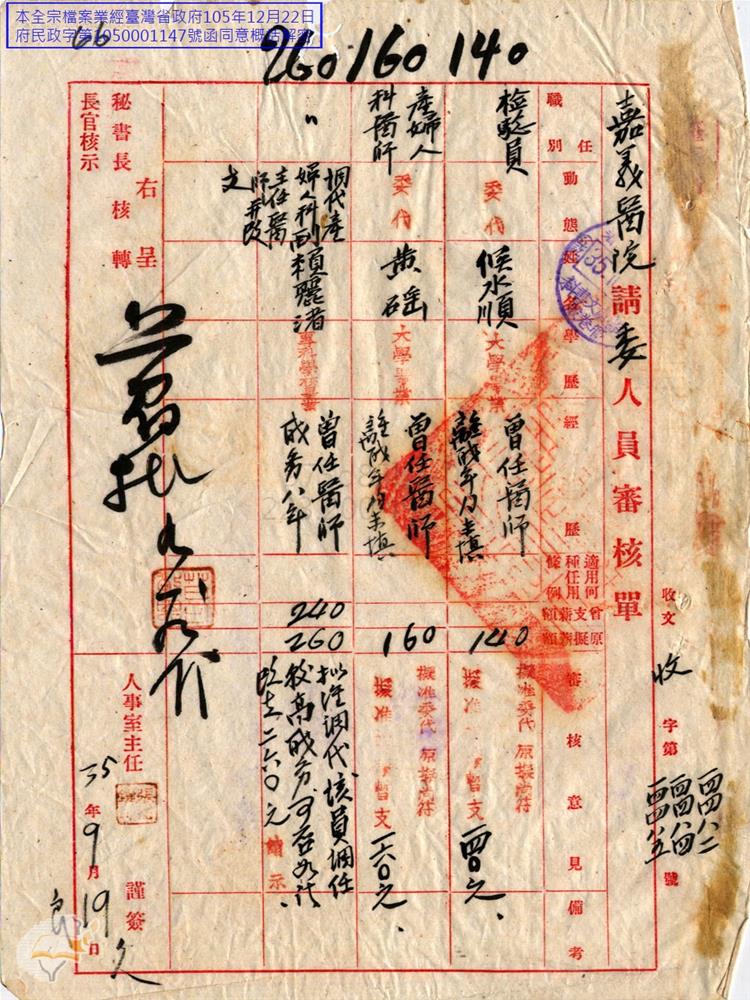 本全宗檔案業經臺灣省政府105年12月22日
府民政字第1050001147號函同意概括解密
66
260 160 140
嘉義醫院請委人員審核單
收文 收 字第 號
四四八二
四四八四
四四八五
職別
任
動態
姓名
學歷
經歷
適用何種任用條例
曾支薪額
原擬薪額
審核意見
備考
檢驗員
委代
候水順
大學畢業
曾任醫師
離職年月未填
140
擬准委代 原擬尚符
擬准 暫支 四〇元、
產婦人科醫師
委代
黃磘
大學畢業
曾任醫師
離職年月未填
160
擬准委代 原擬尚符
擬准 暫支 一六〇元、
〃
調代產婦人科副主任醫師并改支
賴麗渚
專科學校畢業
曾任醫師
成務八年
240
260
擬准調代該員調任
較高職務可否准
改支二六〇元 請示、
右呈
秘書長核轉
長官核示
人事室主任
謹簽
35年9月19日